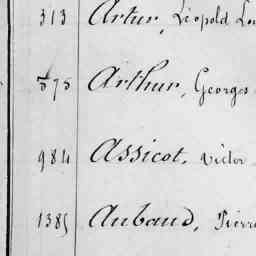 313 Artur, Léopold Lou
575 Arthur, Georges
984 Assicot, Victor
1385 Aubaud, Pierre